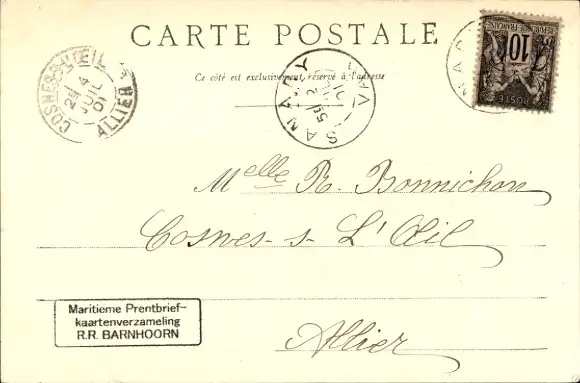 CARTE POSTALE
Ce côté est exclusivement réservé à l'adresse
COSNE-S-L'ŒIL
24
JUIL
01
ALLIER
SANARY
VAR
POSTES
10
RÉPUBLIQUE FRANÇAISE
Melle R. Bonnichon
Cosnes-s- L'Œil
Allier
Maritieme Prentbrief-
kaartenverzameling
R.R. BARNHOORN